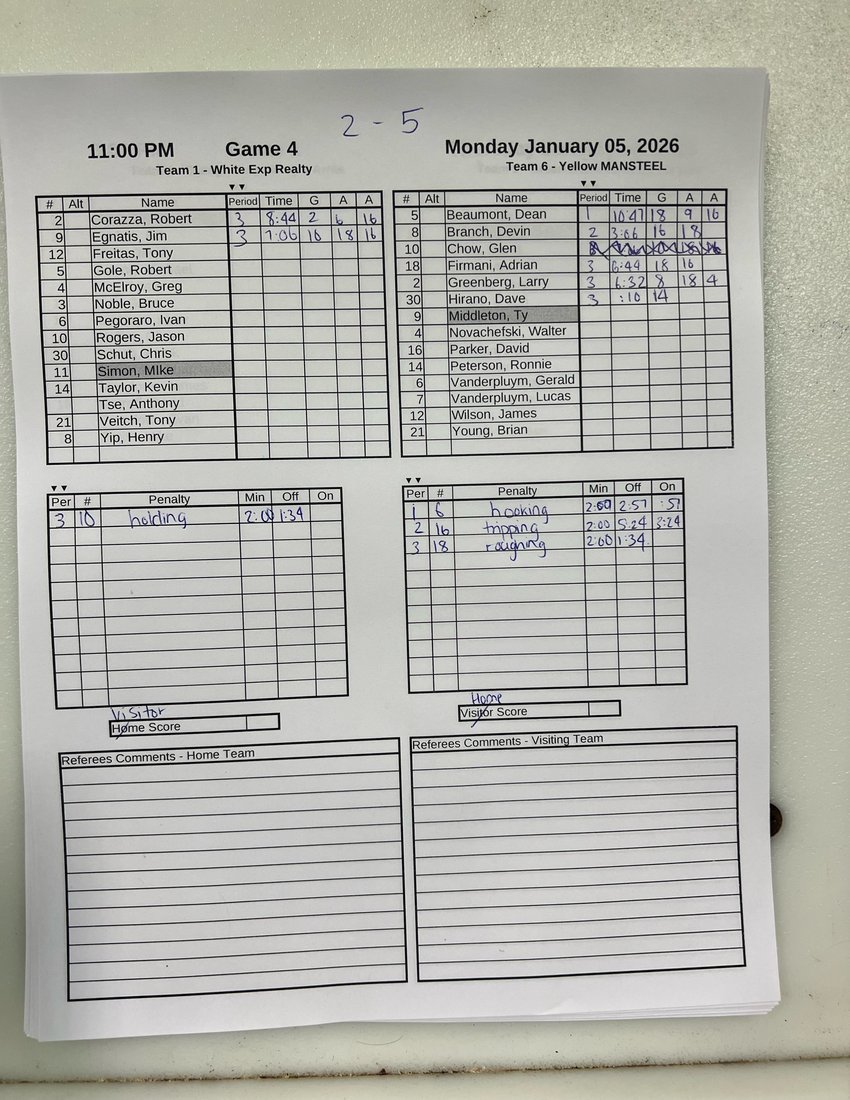 2 - 5
11:00 PM Game 4 Monday January 05, 2026
Team 1 - White Exp Realty Team 6 - Yellow MANSTEEL
# Alt Name Period Time G A A
2 Corazza, Robert 3 8:44 2 6 16
9 Egnatis, Jim 3 7:06 10 18 16
12 Freitas, Tony
5 Gole, Robert
4 McElroy, Greg
3 Noble, Bruce
6 Pegoraro, Ivan
10 Rogers, Jason
30 Schut, Chris
11 Simon, MIke
14 Taylor, Kevin
Tse, Anthony
21 Veitch, Tony
8 Yip, Henry
# Alt Name Period Time G A A
5 Beaumont, Dean 1 10:47 18 9 16
8 Branch, Devin 2 3:06 16 18
10 Chow, Glen
18 Firmani, Adrian 3 6:44 18 16
2 Greenberg, Larry 3 6:32 8 18 4
30 Hirano, Dave 3 :10 14
9 Middleton, Ty
4 Novachefski, Walter
16 Parker, David
14 Peterson, Ronnie
6 Vanderpluym, Gerald
7 Vanderpluym, Lucas
12 Wilson, James
21 Young, Brian
Per # Penalty Min Off On
3 10 holding 2:00 1:34
Per # Penalty Min Off On
1 6 hooking 2:00 2:57 :57
2 16 tripping 2:00 5:24 3:24
3 18 roughing 2:00 1:34
Visitor
Home Score
Home
Visitor Score
Referees Comments - Home Team
Referees Comments - Visiting Team